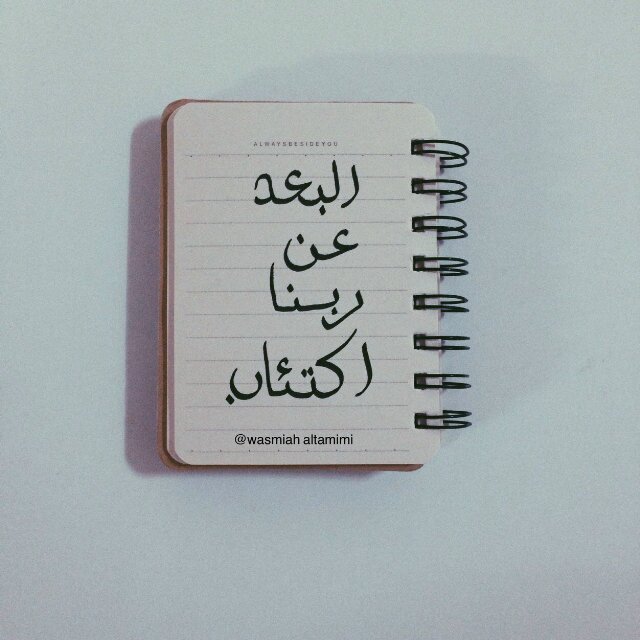 ALWAYSBESIDEYOU
البعد
عن
ربنا
اكتئاب
@wasmiah altamimi